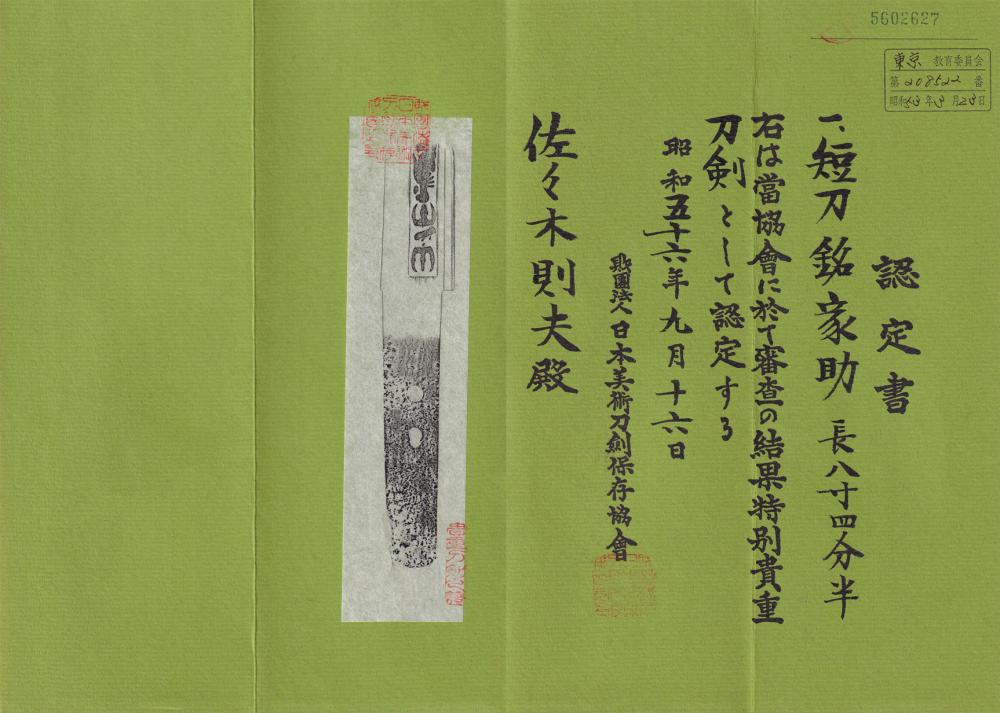 5602627
東京 教育委員会
第208522番
昭和43年3月23日
認定書
一、短刀 銘家助 長八寸四分半
右は當協會に於て審査の結果特別貴重
刀剣として認定する
昭和五十六年九月十六日
財團法人日本美術刀劍保存協會
佐々木則夫殿